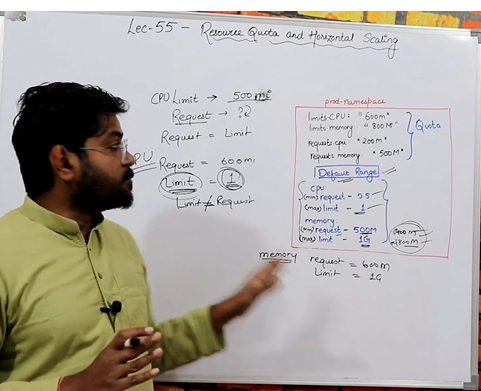 Lec-55 - Resource Quota and Horizontal Scaling
CPU Limit → 500mi
Request → ??
Request = Limit
CPU Request = 600mi
Limit = 1
Limit ≠ Request
prod-namespace
limits CPU: "600m"
limits memory "800M"
requests cpu "200m"
requests memory "500M"
Quota
Default Range
CPU:
(min) request - 0.5
(max) limit - 1
memory:
(min) request - 500M
(max) limit - 1G
800M
memory request = 600M
Limit = 1G